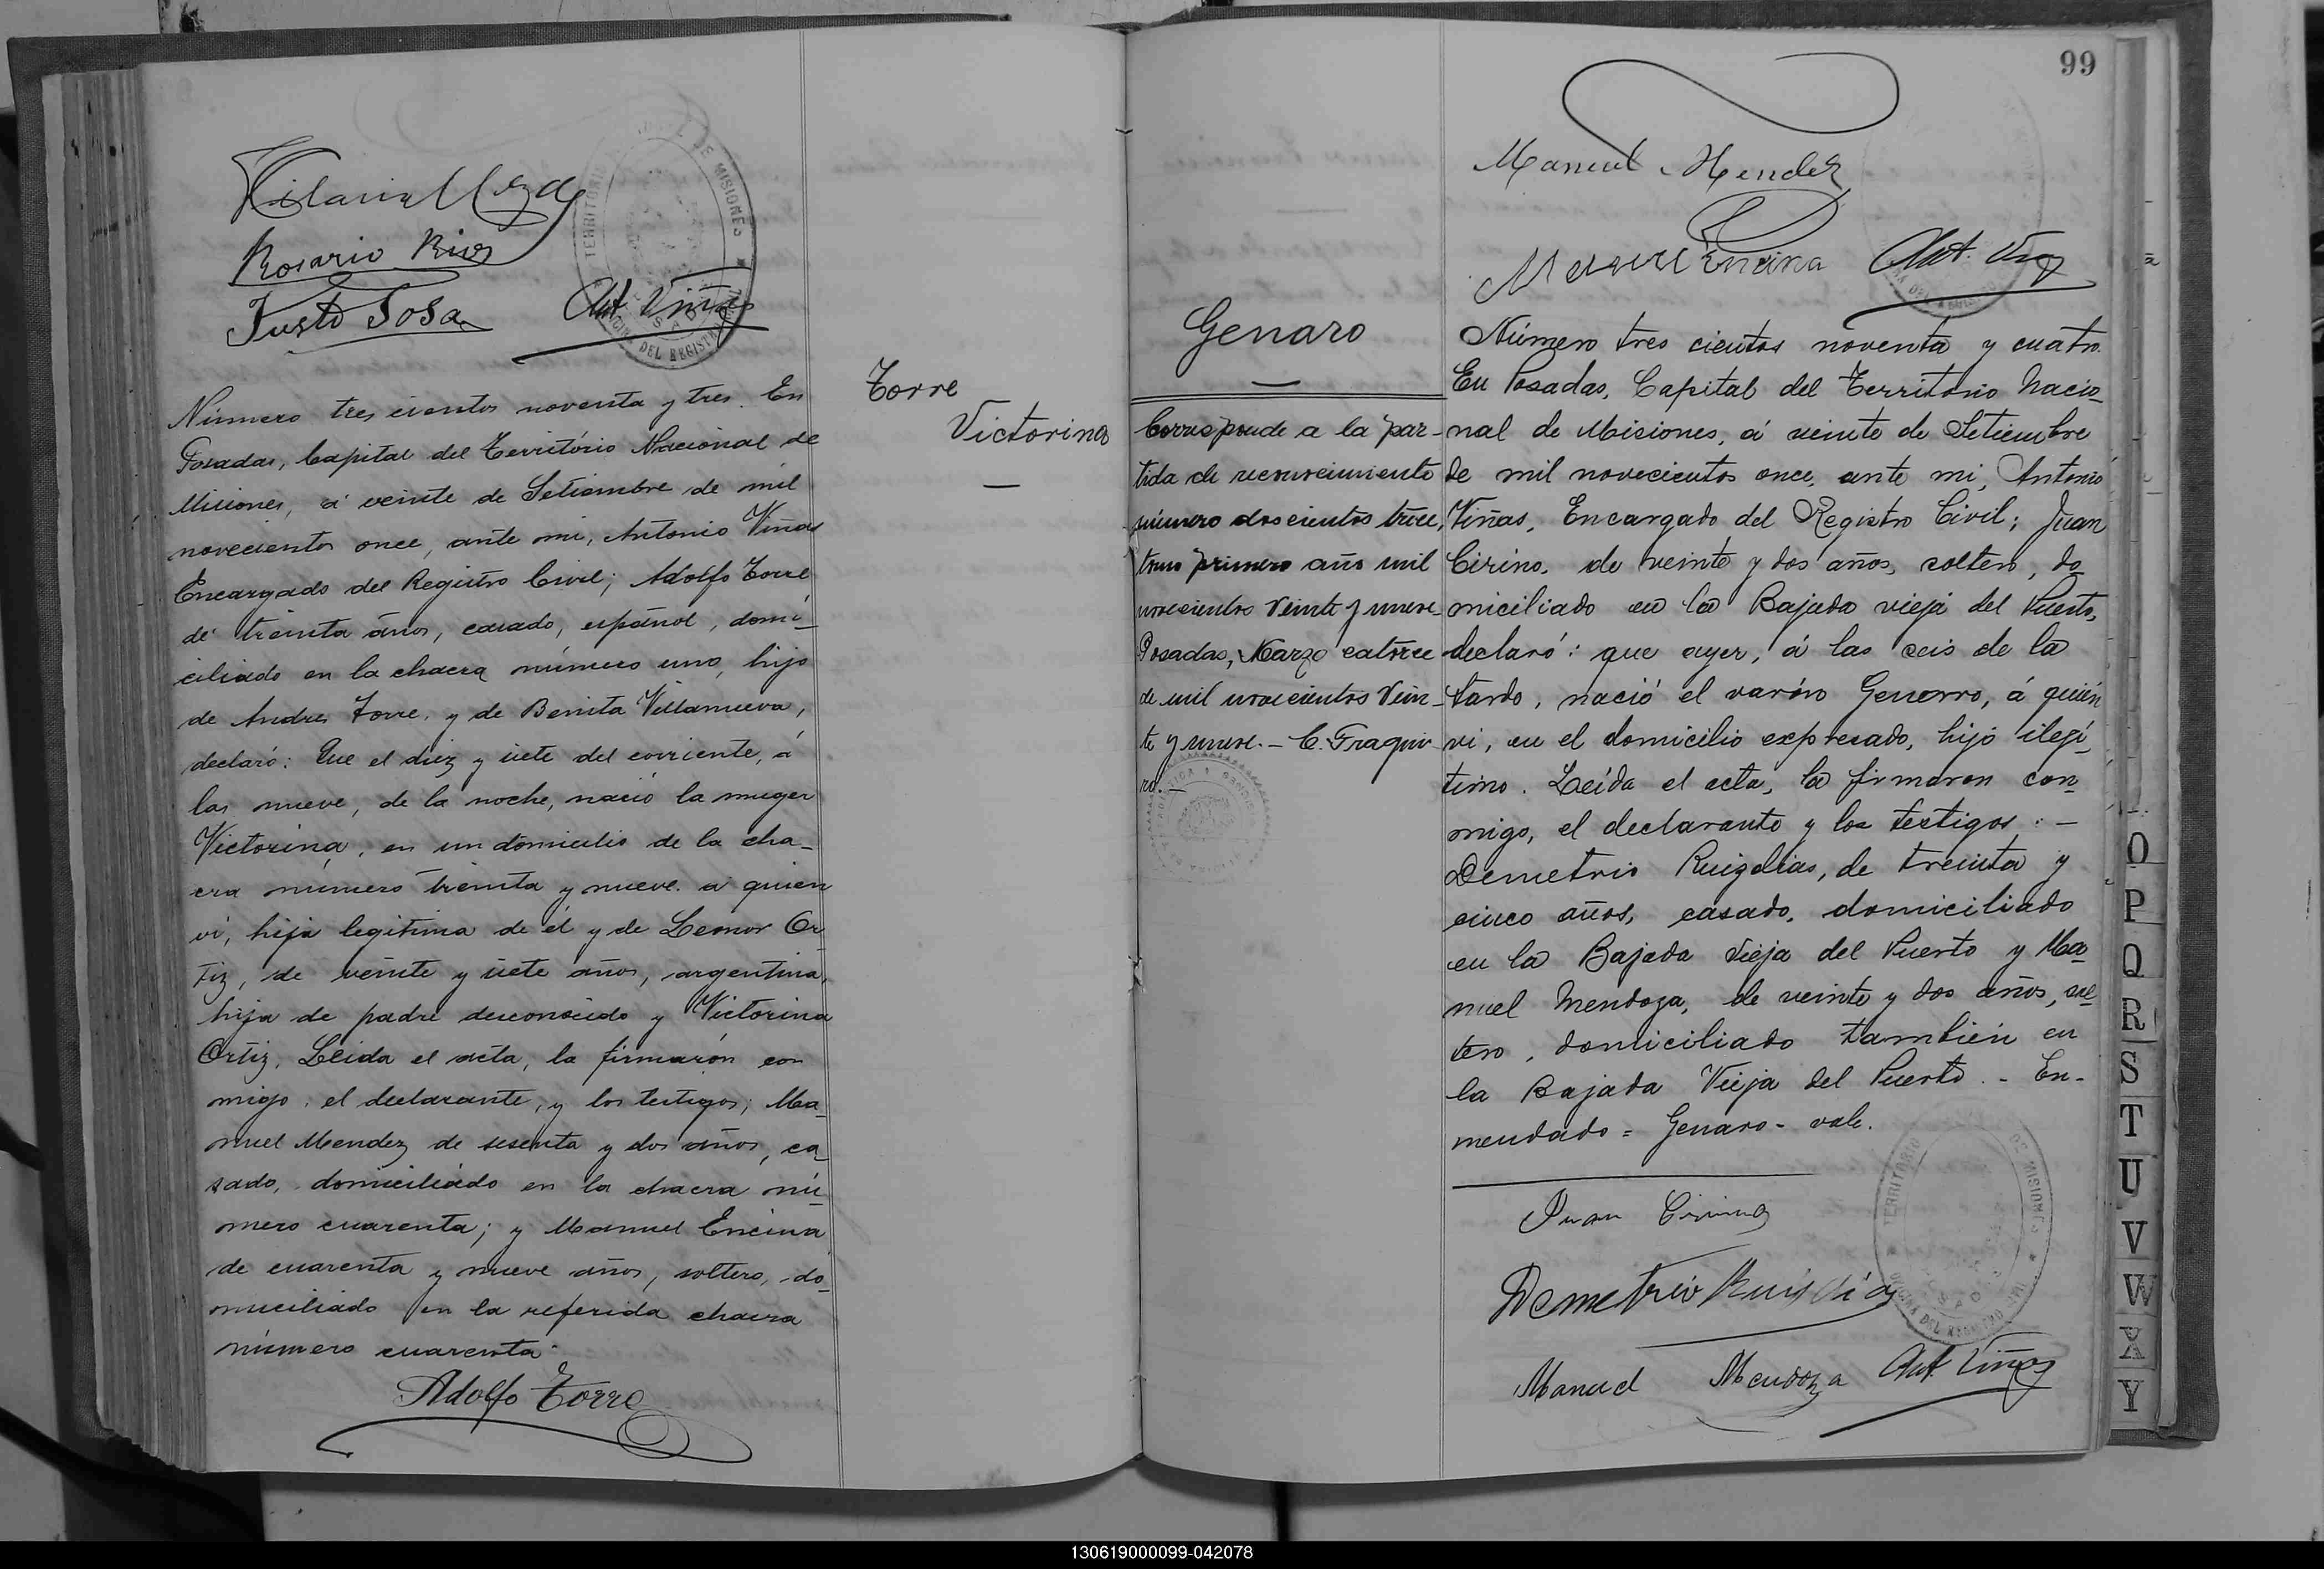 Rosario Rios
Justo Sosa
Ant. Viñas
TERRITORIO
DE MISIONES
DEL REGISTRO
Número tres cientos noventa y tres. En
Posadas, Capital del Território Nacional de
Misiones, á veinte de Setiembre de mil
novecientos once, ante mi, Antonio Viñas
Encargado del Registro Civil; Adolfo Torre
de treinta años, casado, español, domi-
ciliado en la chacra número uno, hijo
de Andres Torre, y de Benita Villanueva,
declaró: Que el diez y siete del corriente, á
las nueve, de la noche, nació la muger
Victorina, en un domicilio de la cha-
cra número treinta y nueve. a quien
vi, hija legitima de él y de Leonor Or-
tiz, de veinte y siete años, argentina,
hija de padre desconocido y Victorina
Ortiz. Leida el acta, la firmarón con
migo, el declarante, y los testigos; Ma-
nuel Mendez de sesenta y dos años, ca-
sado, domiciliado en la chacra nú-
mero cuarenta; y Manuel Encina
de cuarenta y nueve años, soltero, do-
miciliado en la referida chacra
número cuarenta.
Adolfo Torre
Torre
Victorina
—
99
Manuel Mendez
Manuel Encina Ant. Viñas
Genaro
—
Corresponde a la par-
tida de reconocimiento
número doscientos trece,
tomo primero año mil
novecientos veinte y nueve
Posadas, Marzo catorce
de mil novecientos vein-
te y nueve. - C. Fraguei-
ro.-
Número tres cientos noventa y cuatro.
En Posadas, Capital del Território Nacio-
nal de Misiones, á veinte de Setiembre
de mil novecientos once, ante mi, Antonio
Viñas, Encargado del Registro Civil; Juan
Cirino, de veinte y dos años, soltero, do-
miciliado en la Bajada vieja del Puerto,
declaró: que ayer, á las seis de la
tarde, nació el varón Genarro, á quién
vi, en el domicilio expresado, hijo ilegí-
timo. Leída el acta, la firmaron con-
migo, el declarante y los testigos: -
Demetrio Ruizdias, de treinta y
cinco años, casado, domiciliado
en la Bajada Vieja del Puerto y Ma-
nuel Mendoza, de veinte y dos años, sol-
tero, domiciliado también en
la Bajada Vieja del Puerto. - En-
mendado = Genaro - vale.
Juan Cirino
Demetrio Ruis dias
Manuel Mendoza Ant. Viñas
TERRITORIO
DE MISIONES
O
P
Q
R
S
T
U
V
W
X
Y
130619000099-042078